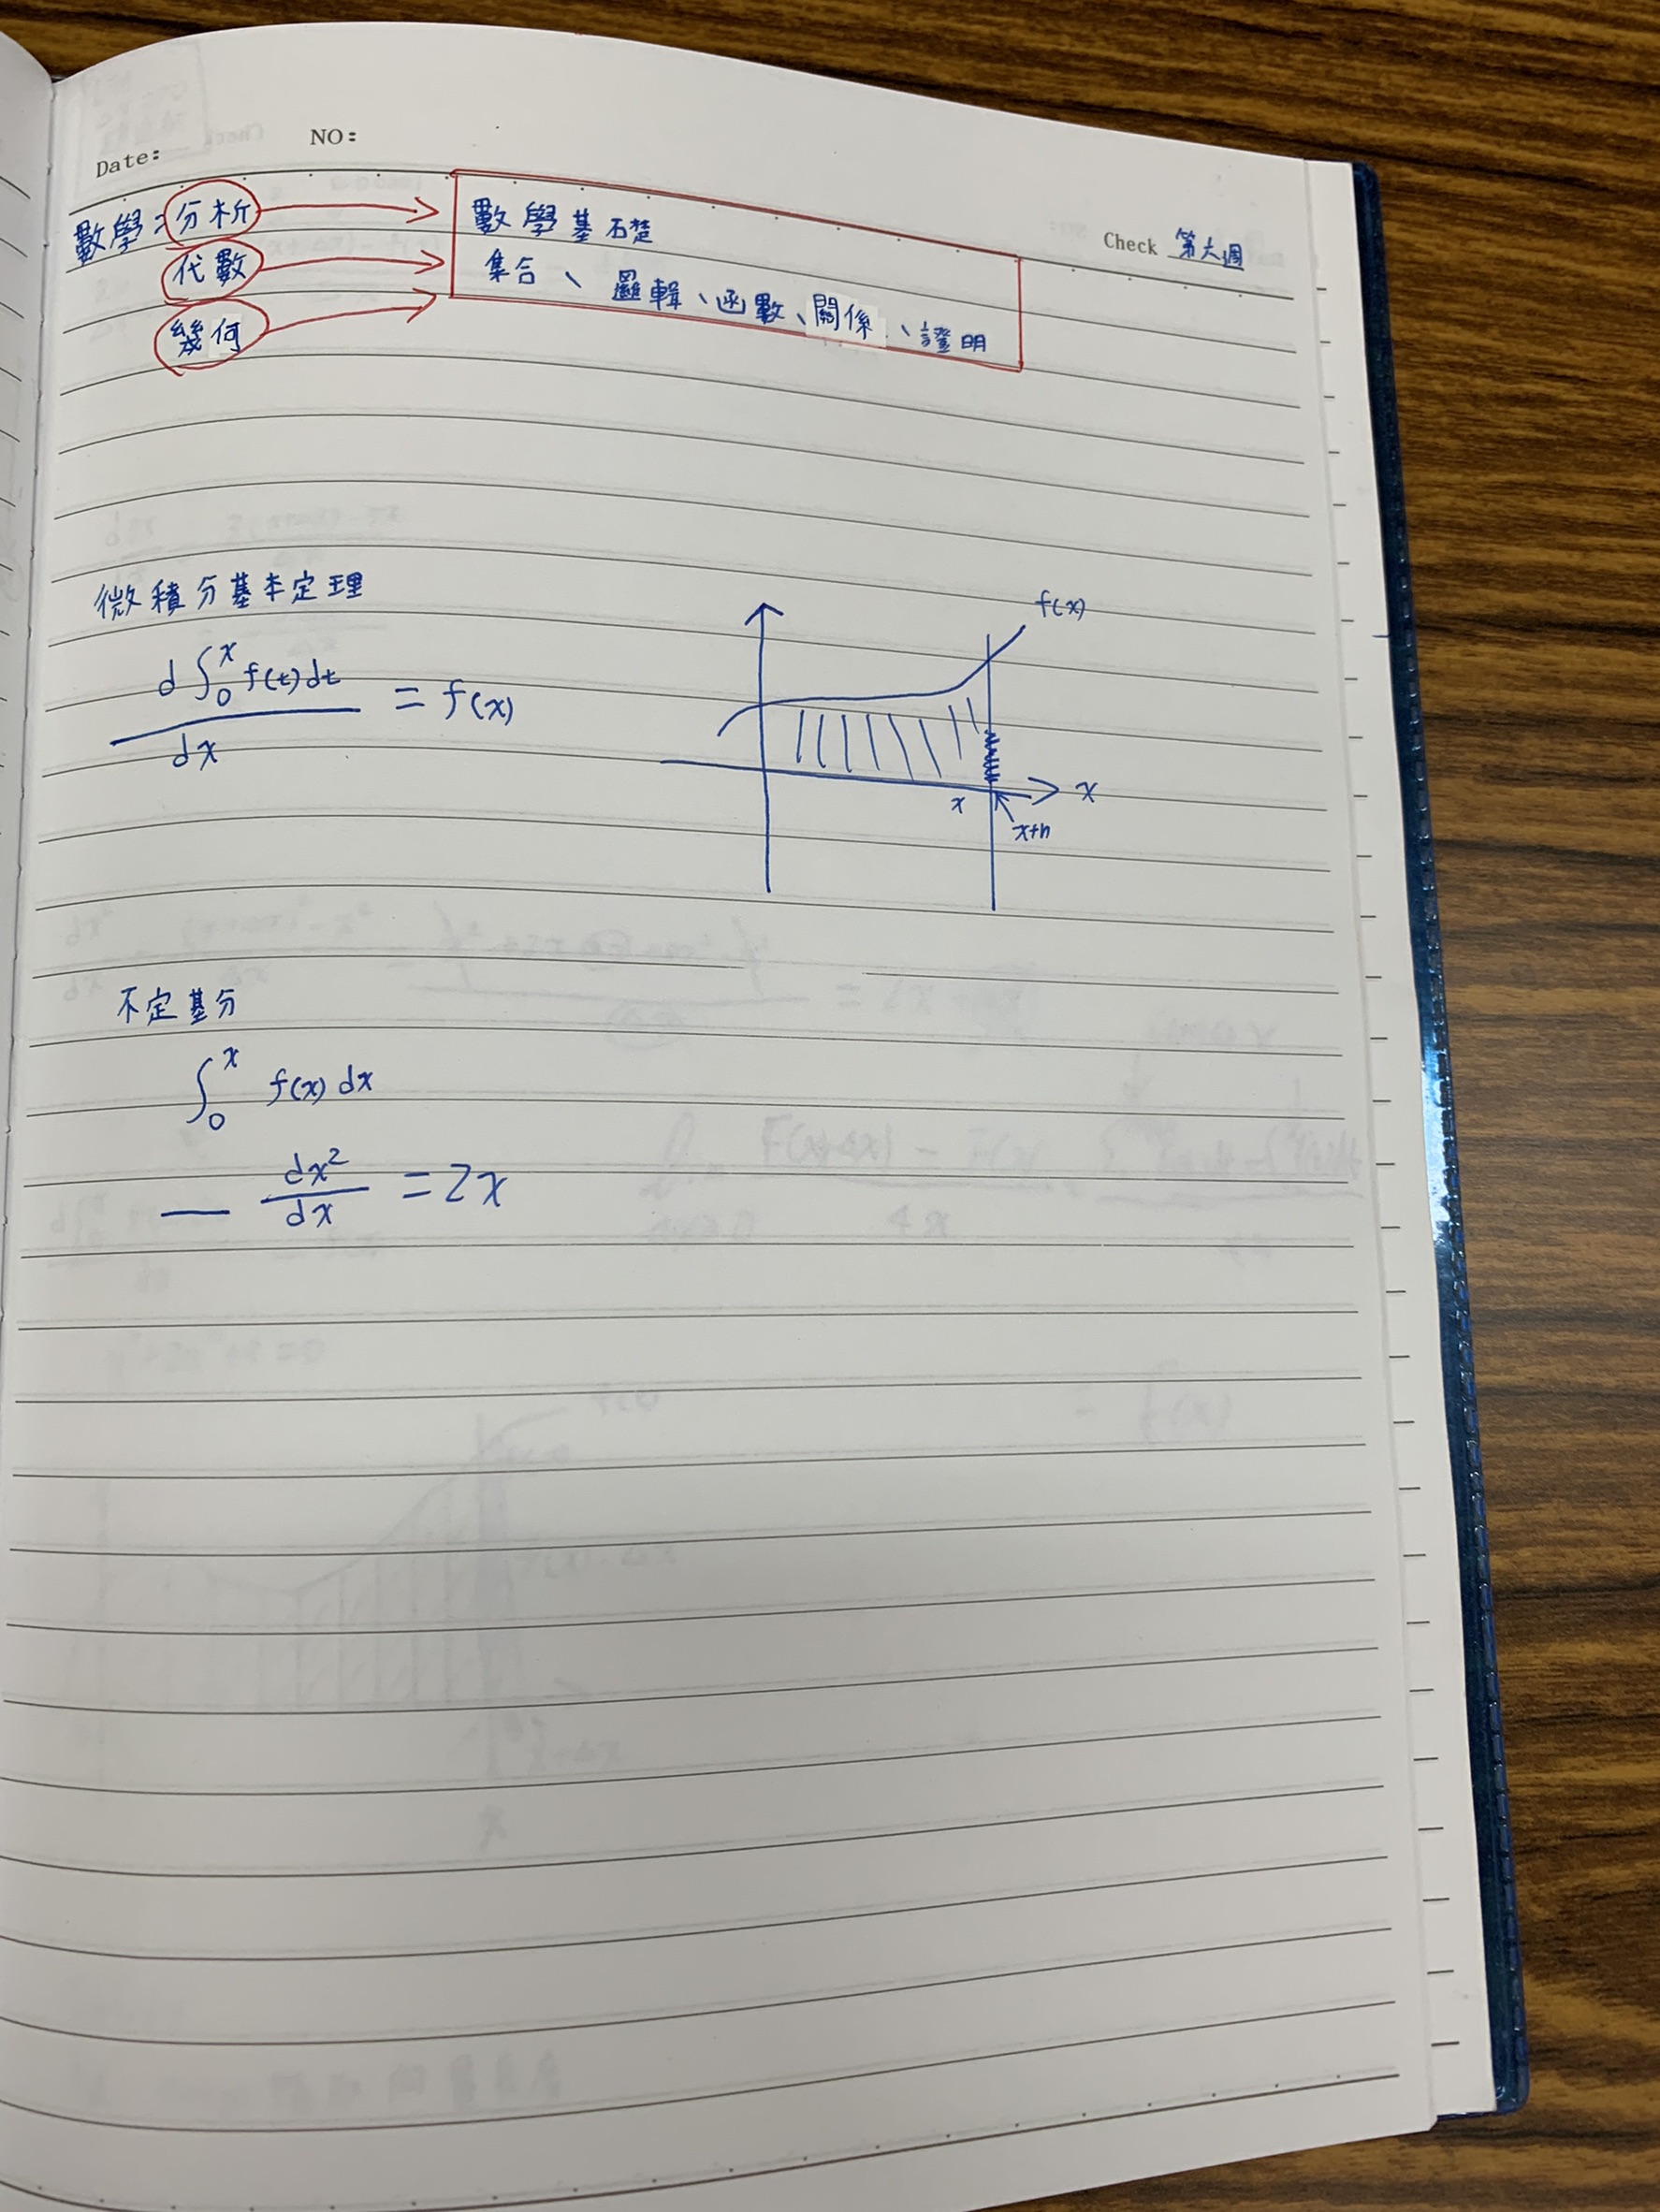 Date:
NO:
Check 第六週
數學：分析
代數
幾何
數學基礎
集合、邏輯、函數、關係、證明
微積分基本定理
d∫₀ˣ f(t)dt
dx
= f(x)
f(x)
x
x
x+h
不定基分
∫₀ˣ f(x) dx
— dx²
dx
= 2x